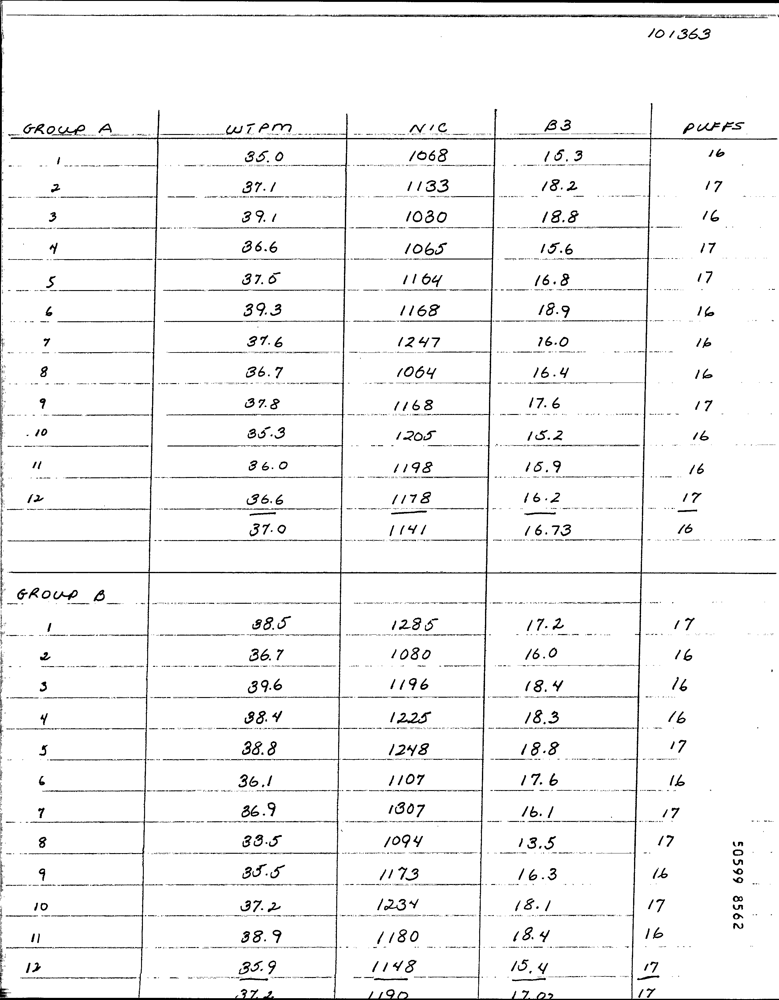 101363
GROUP A WTPM NIC B3 PUFFS
1 35.0 1068 15.3 16
2 37.1 1133 18.2 17
3 39.1 1030 18.8 16
4 36.6 1065 15.6 17
5 37.5 1164 16.8 17
6 39.3 1168 18.9 16
7 37.6 1247 16.0 16
8 36.7 1064 16.4 16
9 37.8 1168 17.6 17
10 35.3 1205 15.2 16
11 36.0 1198 15.9 16
12 36.6 1178 16.2 17
37.0 1141 16.73 16
GROUP B
1 38.5 1285 17.2 17
2 36.7 1080 16.0 16
3 39.6 1196 18.4 16
4 38.4 1225 18.3 16
5 38.8 1248 18.8 17
6 36.1 1107 17.6 16
7 36.9 1307 16.1 17
8 33.5 1094 13.5 17
9 35.5 1173 16.3 16
10 37.2 1234 18.1 17
11 38.9 1180 18.4 16
12 35.9 1148 15.4 17
37.2 1190 17.02 17
50599 8562